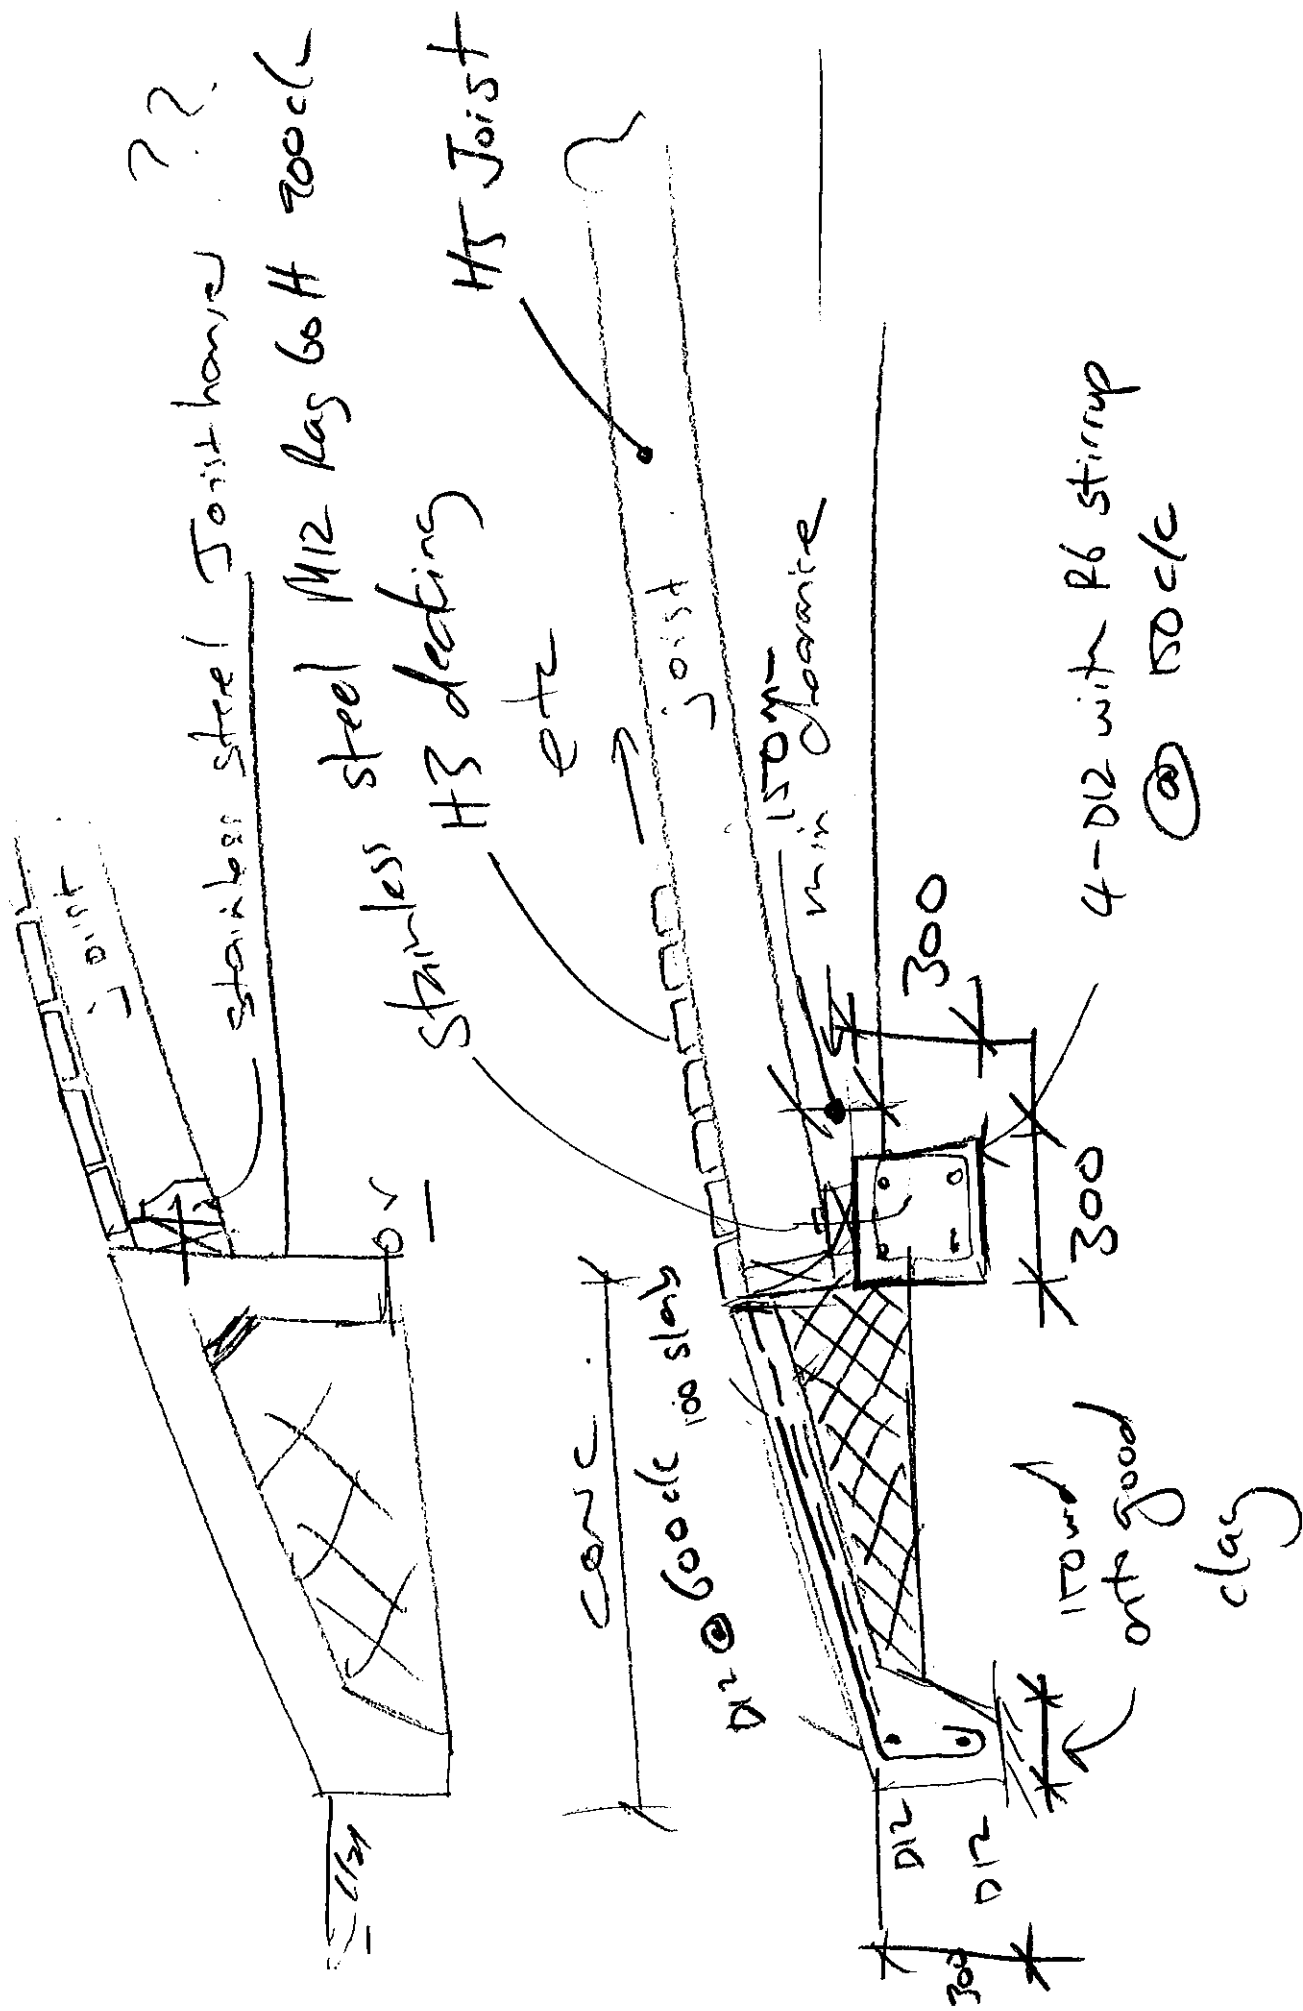 ??
stainless steel Joist hanger
stainless steel M12 Rag bolt 900 c/c
H3 decking
etc
H5 Joist
joist
joist
or
150mm
min clearance
conc.
D12 @ 600 c/c 100 slab
300
300
4-D12 with R6 stirrup
@ 150 c/c
150 wide
onto good
clay
D12
D12
300